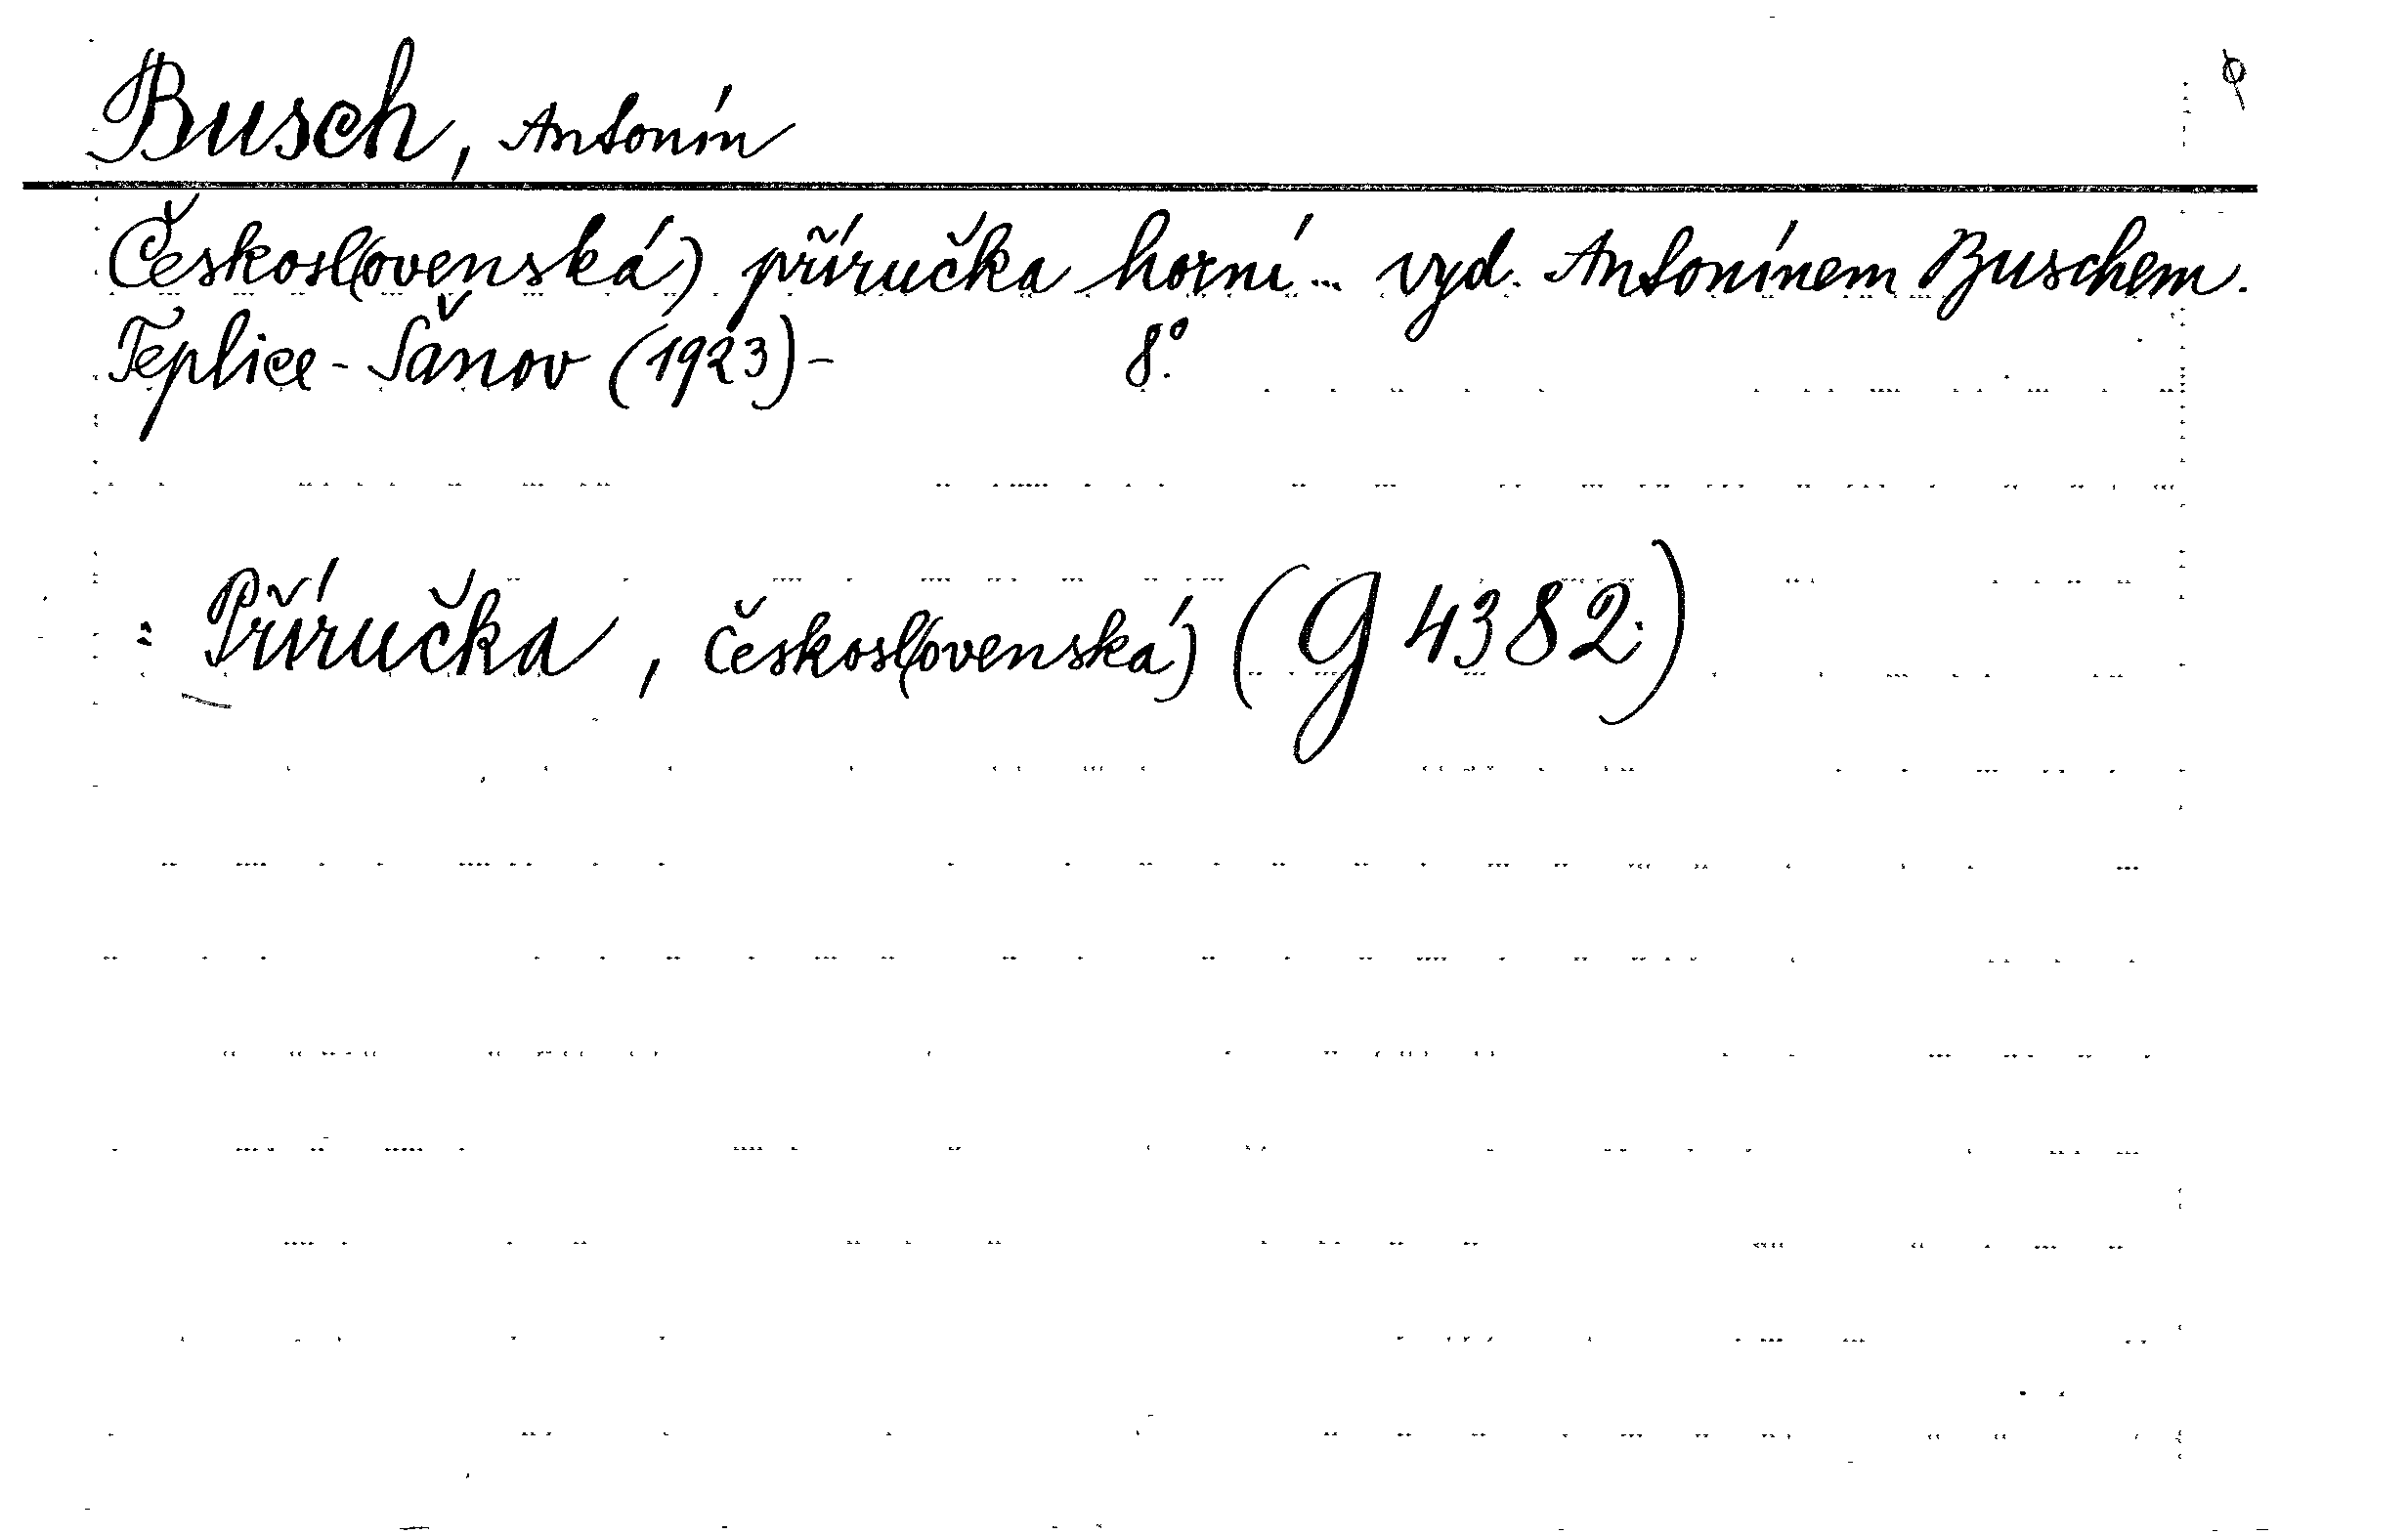 Busch, Antonín
Českosl(ovenská) příručka horní... vyd. Antonínem Buschem.
Teplice-Šanov (1923)- 8°.
= Příručka, českosl(ovenská) (G 4382.)